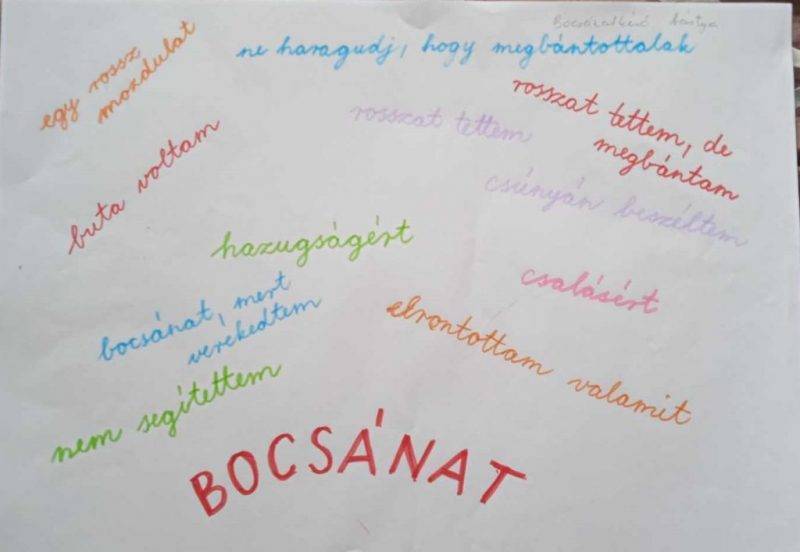 Bocsánatkérő bástya
egy rossz
mozdulat
ne haragudj, hogy megbántottalak
rosszat tettem, de
megbántam
rosszat tettem
buta voltam
csúnyán beszéltem
hazugságért
csalásért
bocsánat, mert
verekedtem
elrontottam valamit
nem segítettem
BOCSÁNAT